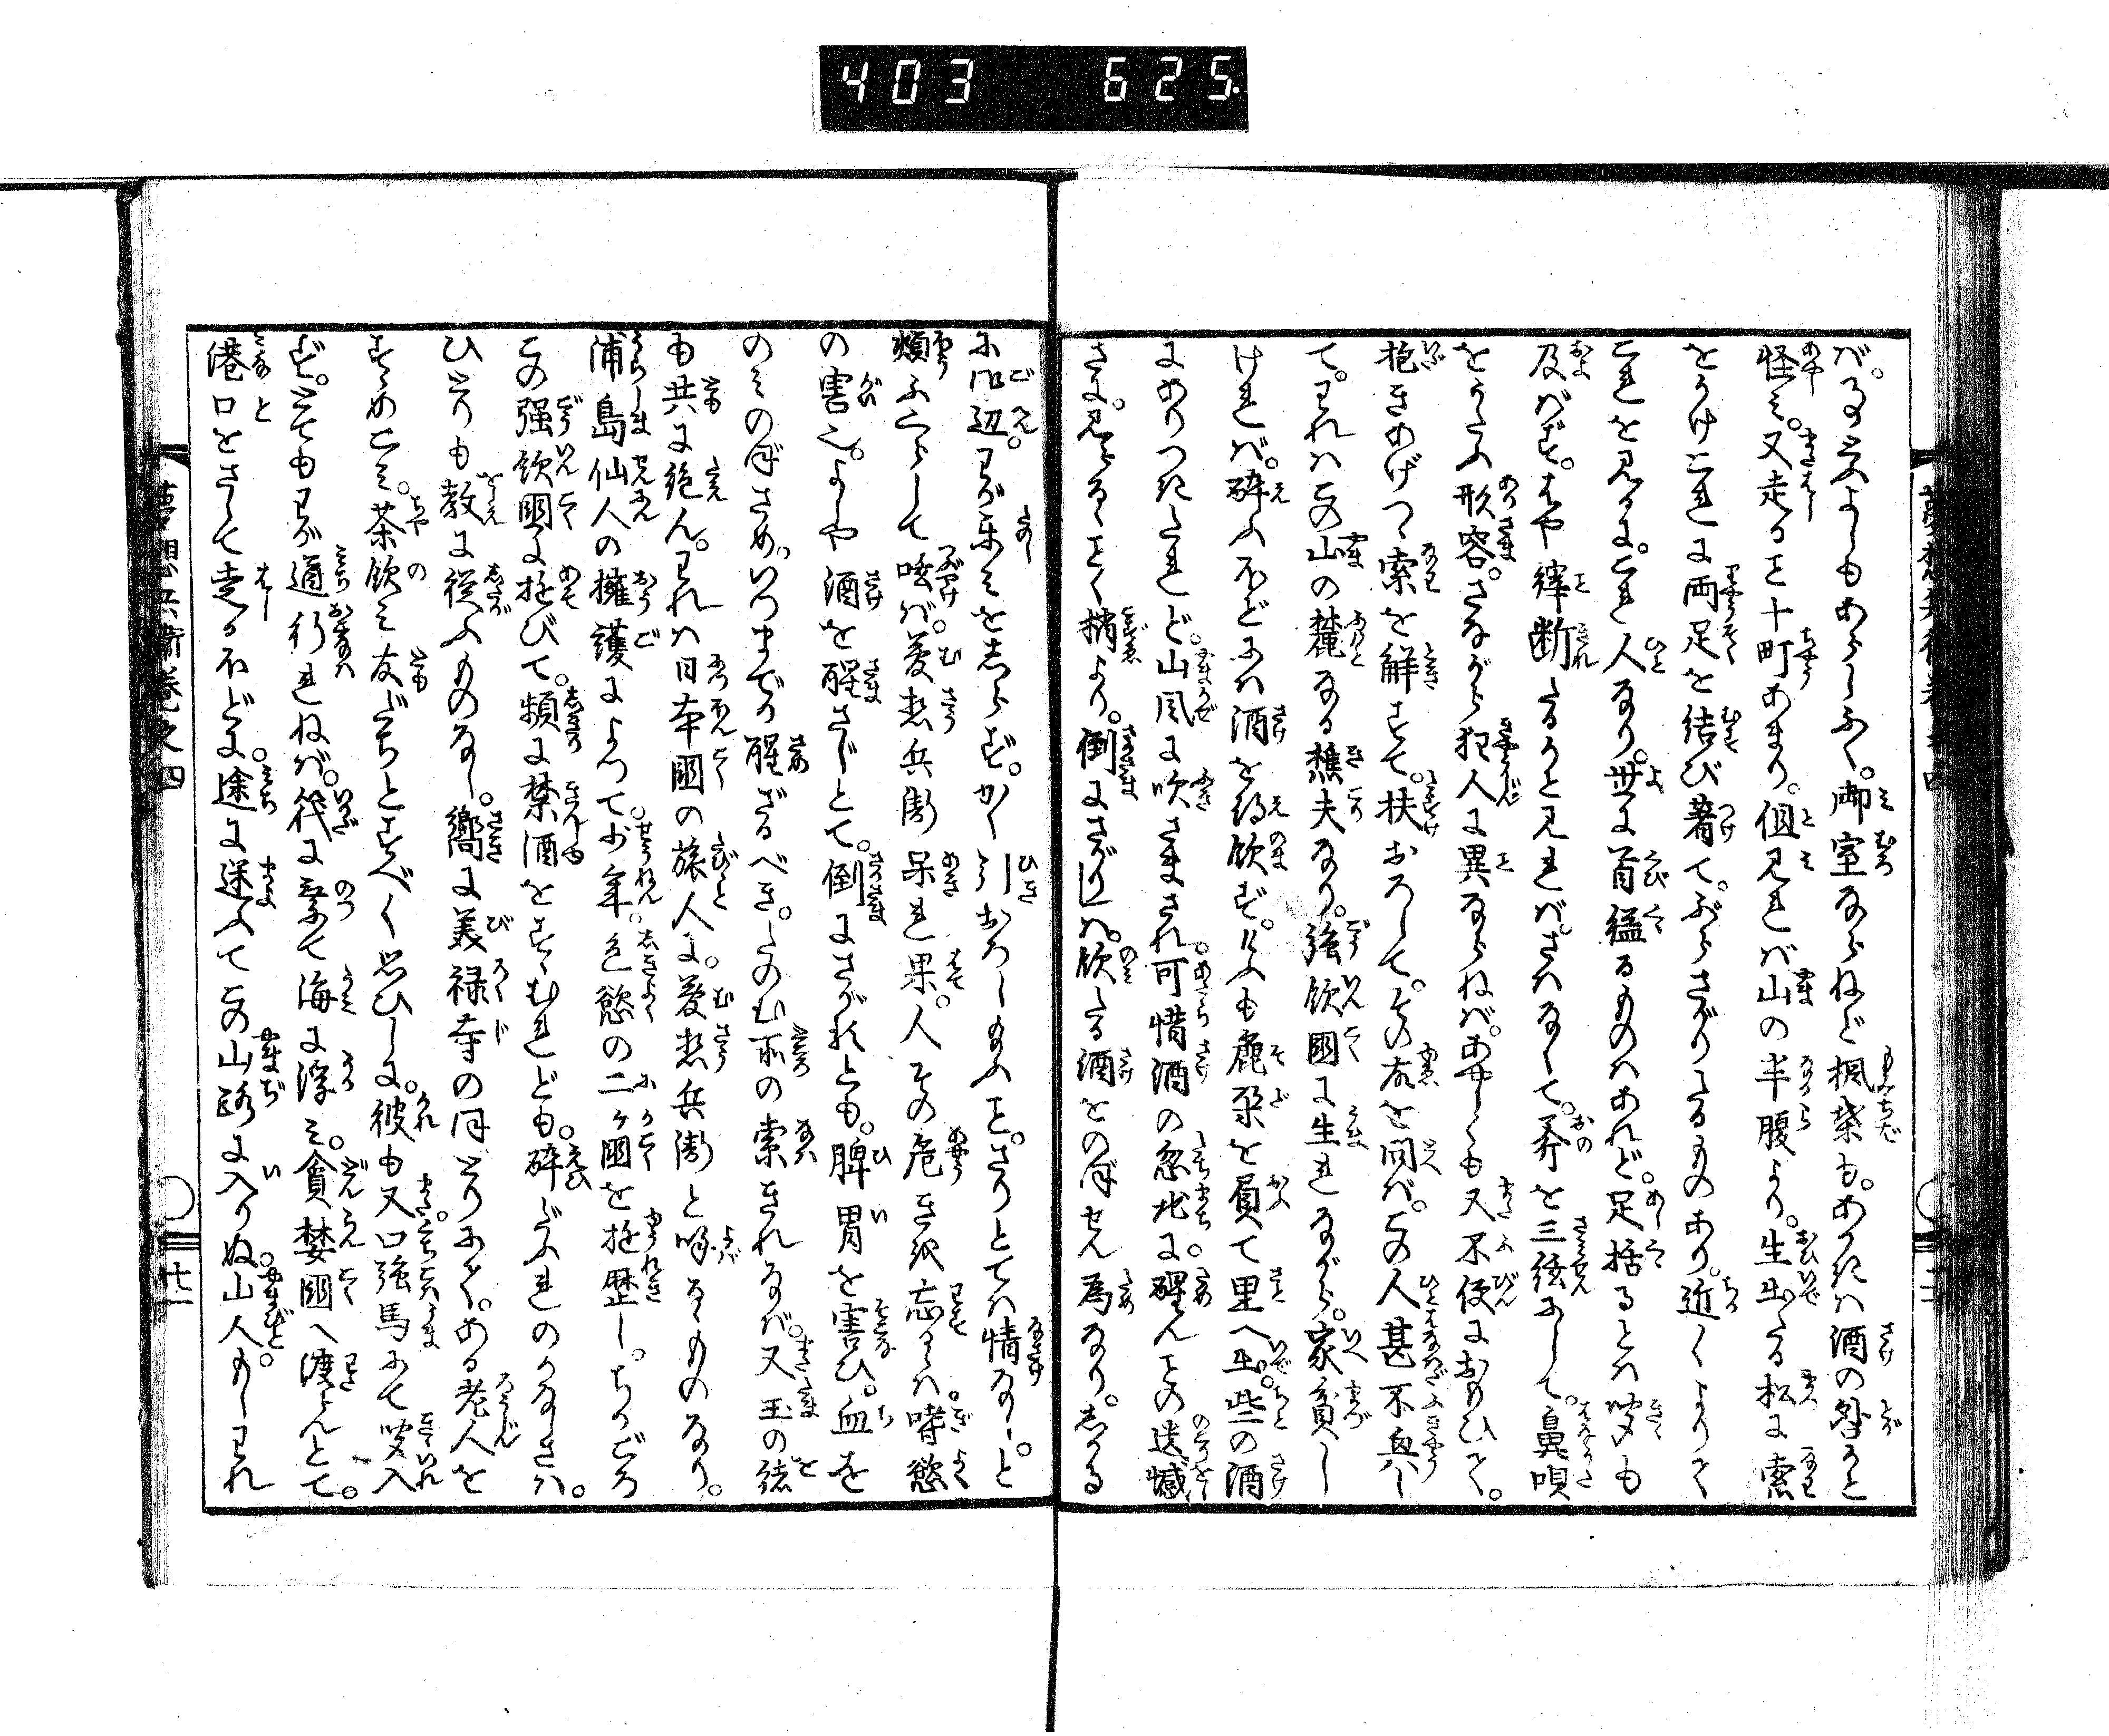 403 625
ば。るの云よしもあらしふく。御室ならねど楓葉も。あかきは酒の咎かと
怪み。又走ること十町あまり。但見れば山の半腹より。生出たる松に索
をうけこれに両足を結び著て。ぶらさがりたるものあり。近くよりて
これを見るに。これ人なり。世に首縊るものはあれど。足括るとは聞も
及ばず。はや縡断たるかと見れば。さはなくて。斧を三絃にして。鼻唄
をうたふ形容。さながら狂人に異ならねば。あやしくも又不便におもひて。
抱きあげつゝ索を解すて。扶おろして。その故を問ば。この人甚不興し
て。われはこの山の麓なる樵夫なり。強飲国に生れながら。家貧し
ければ。酔ふほどには酒を得飲ず。けふも麁朶を負て里へ出。些の酒
にありつきたれど。山風に吹さまされ。可惜酒の忽地に。醒んことの遺憾
さに。見らるゝごとく梢より。倒にさがりしは。飲たる酒をのぼせん為なり。しかる
に御辺。わが楽みをしらず。かく引おろし給ふこと。さりとては情なし。と
頻にくらして咳ば。夢想兵衛呆れ果。人その危きを忘るゝは。嗜慾
の害也。よしや酒を醒さじとて。倒にさがるとも。脾胃を害ひ。血を
のみのぼさめ。いつまでか醒ざるべき。たのむ所の索きれなば。又玉の緒
も共に絶ん。われは日本国の旅人に。夢想兵衛と呼るゝものなり。
浦島仙人の擁護によつて。少年。色慾の二ヶ国を遊歴し。ちかごろ
この強飲国に遊びて。頻に禁酒をすゝむれども。酔どれのかなしさは。
ひとりも教に従ふものなし。嚮に美禄寺の門とりにて。ある老人を
すゝめこみ。茶飲み友だちとすべく思ひしに。彼も又口強馬にて聞入
ず。とてもわが道行れねば。筏に乗て海に浮み。貪婪国へ渡らんとて。
港口をさして走るほどに。途に迷ふてこの山路に入りぬ。山人もしわれ
夢想兵衛巻之四